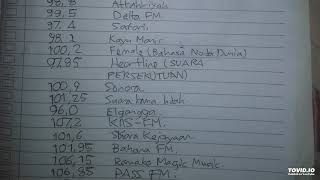 98,8 Attahiriyah
99,5 Delta FM
97.4 Safari
98.1
100,2 Female (Bahasa Nada Dunia)
97,85 Heartline (SUARA
PERSEKUTUAN)
100,9 Sonora
101,25 Suara Irama Indah
96,0 Elgangga
107,2 KIS-FM.
101,6 Suara Kejayaan
101,95 Bahana FM
106,15 Ramako Magik Music.
106,85 PASS FM.
TOVID.IO